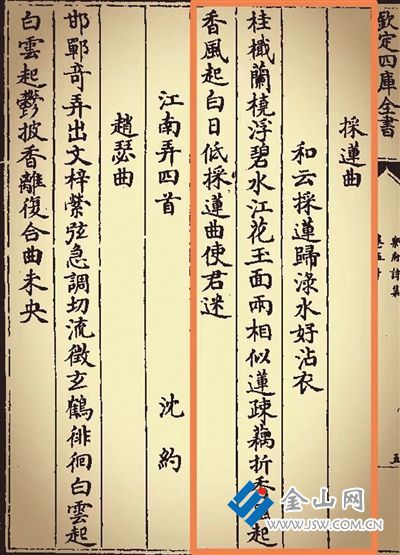 欽定四庫全書
樂府詩集
採蓮曲
和云採蓮歸淥水好沾衣
桂檝蘭橈浮碧水江花玉面兩相似蓮疎藕折香風起
香風起白日低採蓮曲使君迷
江南弄四首 沈約
趙瑟曲
邯鄲奇弄出文梓縈弦急調切流徵玄鶴徘徊白雲起
白雲起鬱披香離復合曲未央
金山网
WWW.JSW.COM.CN